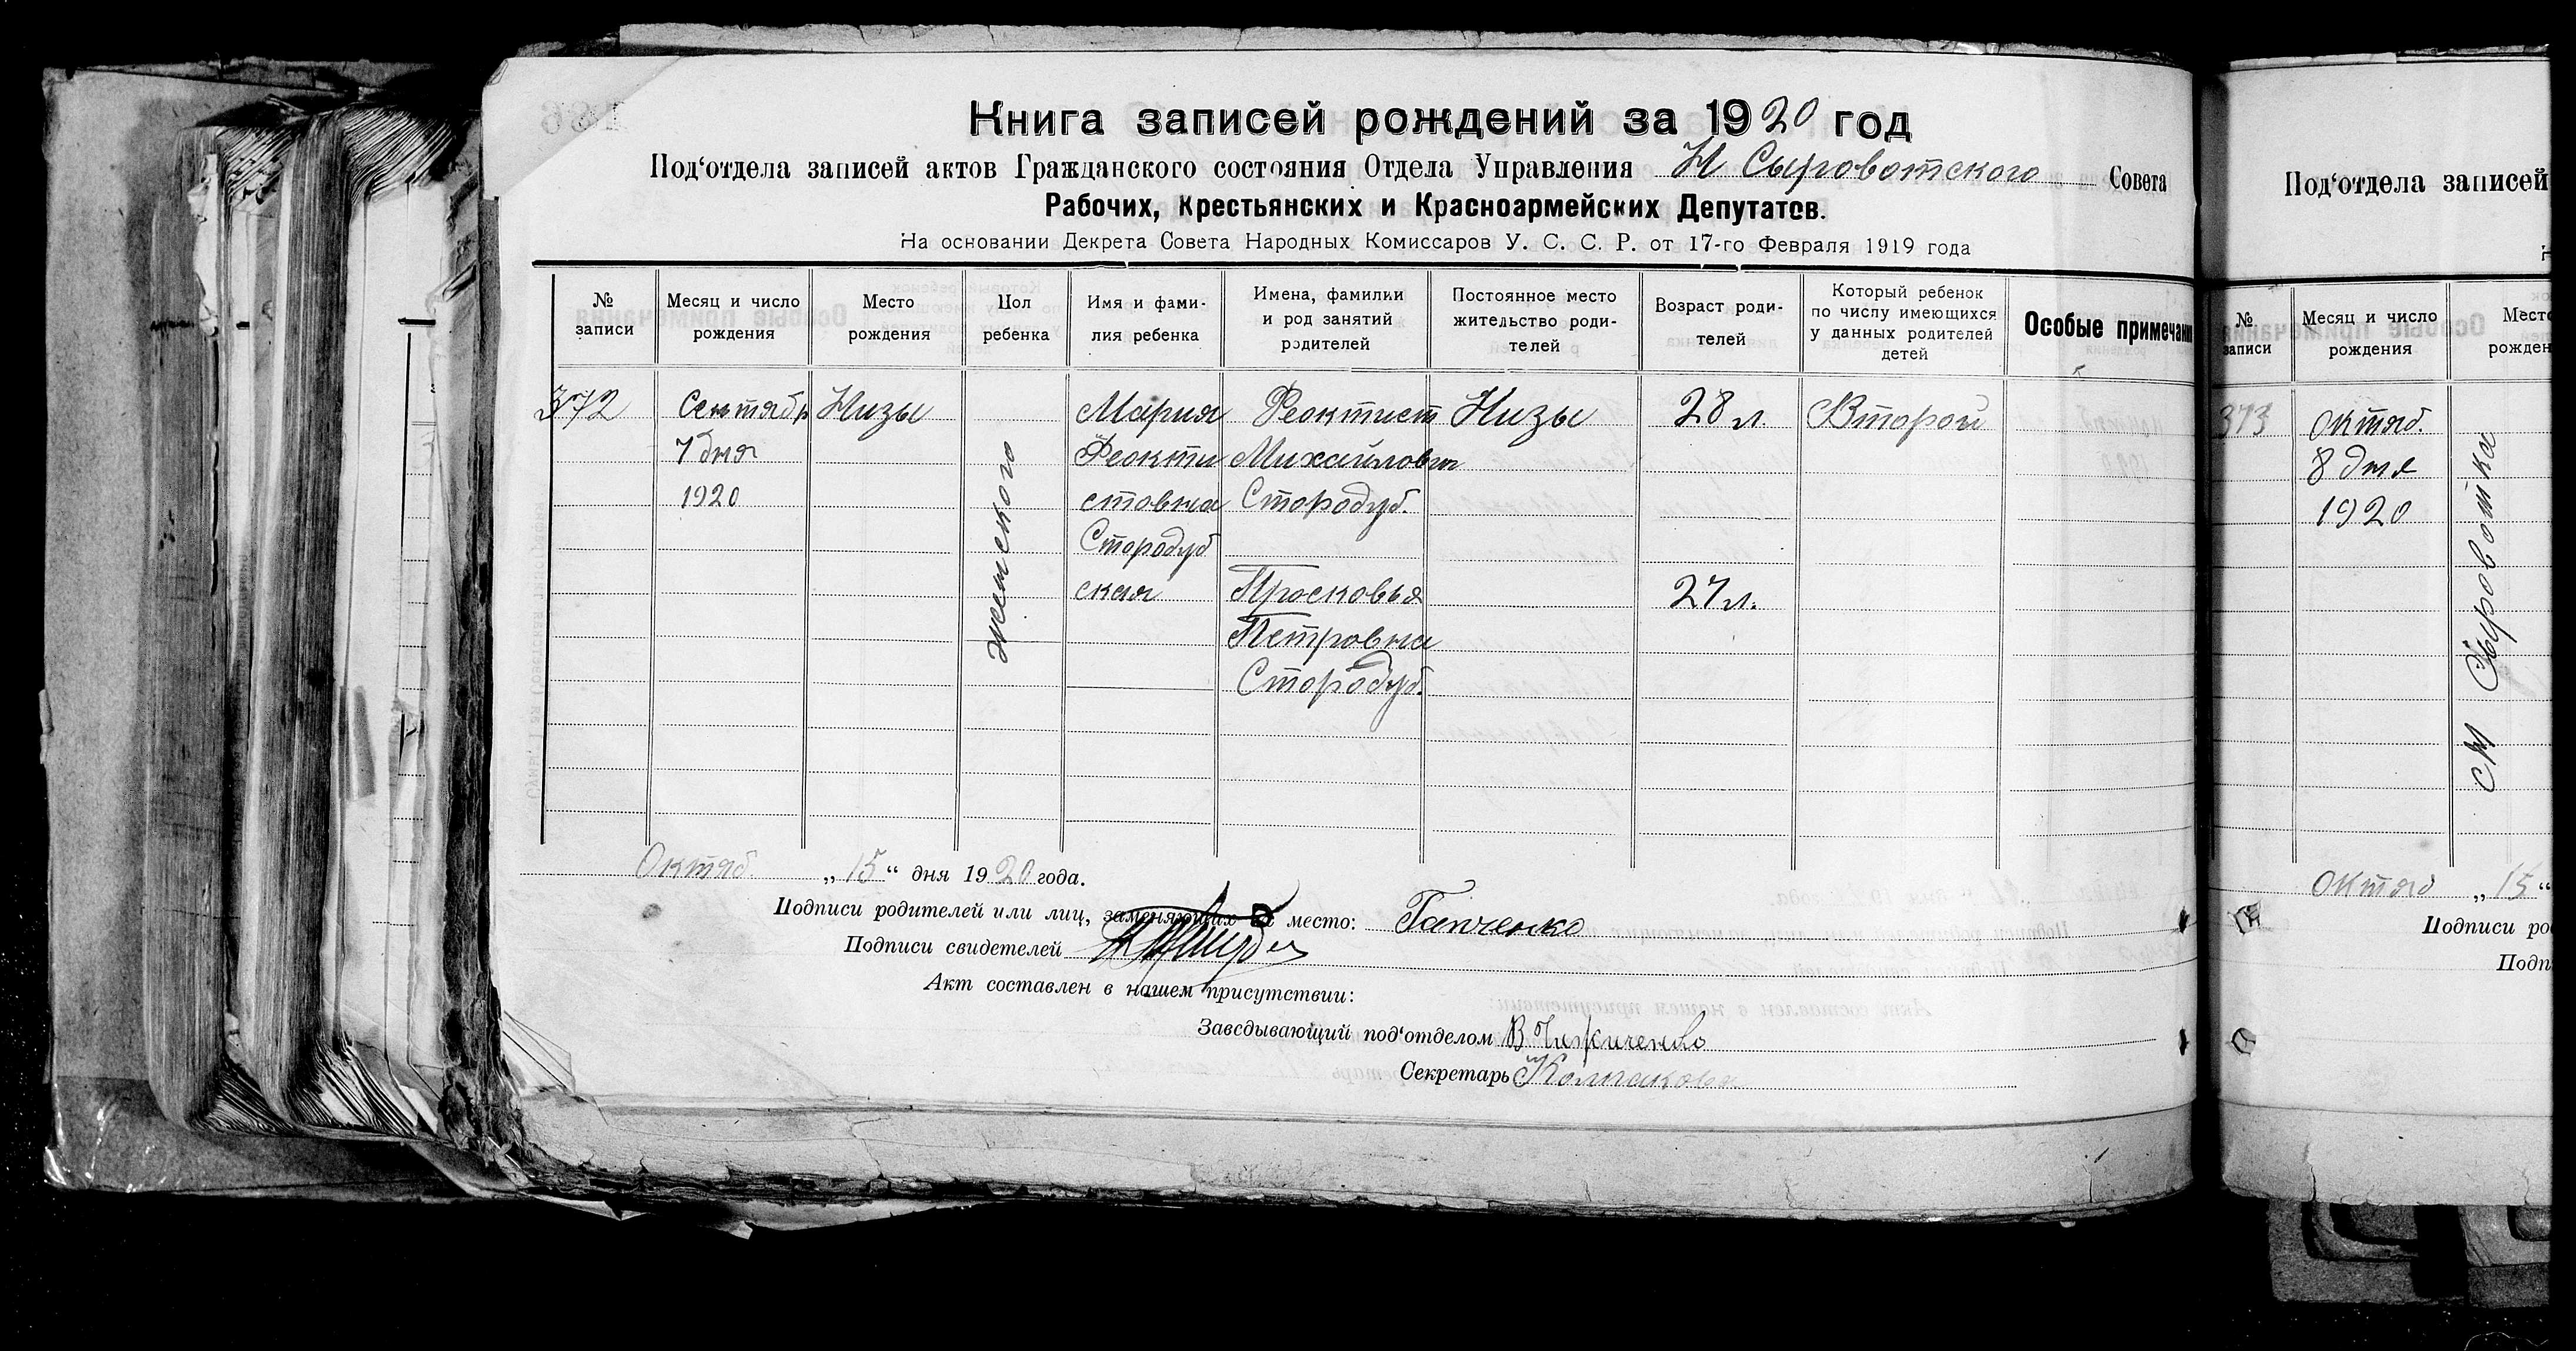 Книга записей рождений за 1920 год
Под'отдела записей актов Гражданского состояния Отдела Управления Н Сыроватского Совета
Рабочих, Крестьянских и Красноармейских Депутатов.
На основании Декрета Совета Народных Комиссаров У. С. С. Р. от 17-го Февраля 1919 года
№ записи
Месяц и число рождения
Место рождения
Пол ребенка
Имя и фами-
лия ребенка
Имена, фамилии
и род занятий
родителей
Постоянное место
жительство роди-
телей
Возраст роди-
телей
Который ребенок
по числу имеющихся
у данных родителей
детей
Особые примечани
372
Сентябр
7 дня
1920
Низы
женского
Мария
Феокти
стовна
Стородуб
ская
Феоктист
Михайлович
Стородуб.
Просковья
Петровна
Стородуб.
Низы
28 л.
27 л.
Второй
Октяб. „15“ дня 1920 года.
Подписи родителей или лиц, заменяющих место: Гапченко
Подписи свидетелей
Акт составлен в нашем присутствии:
Заведывающий под'отделом В
Секретарь
Под'отдела записей
№ записи
Месяц и число рождения
Место
рожден
373
Октяб.
8 дня
1920
Сыроватка
Октяб „15“
Подписи ро
Подп